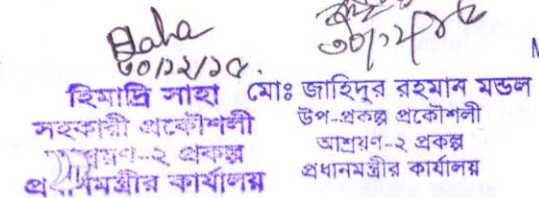 Saha
৩০/১২/১৫.
হিমাদ্রি সাহা
সহকারী প্রকৌশলী
আশ্রয়ণ-২ প্রকল্প
প্রধানমন্ত্রীর কার্যালয়
৩০/১২/১৫
মোঃ জাহিদুর রহমান মন্ডল
উপ-প্রকল্প প্রকৌশলী
আশ্রয়ণ-২ প্রকল্প
প্রধানমন্ত্রীর কার্যালয়